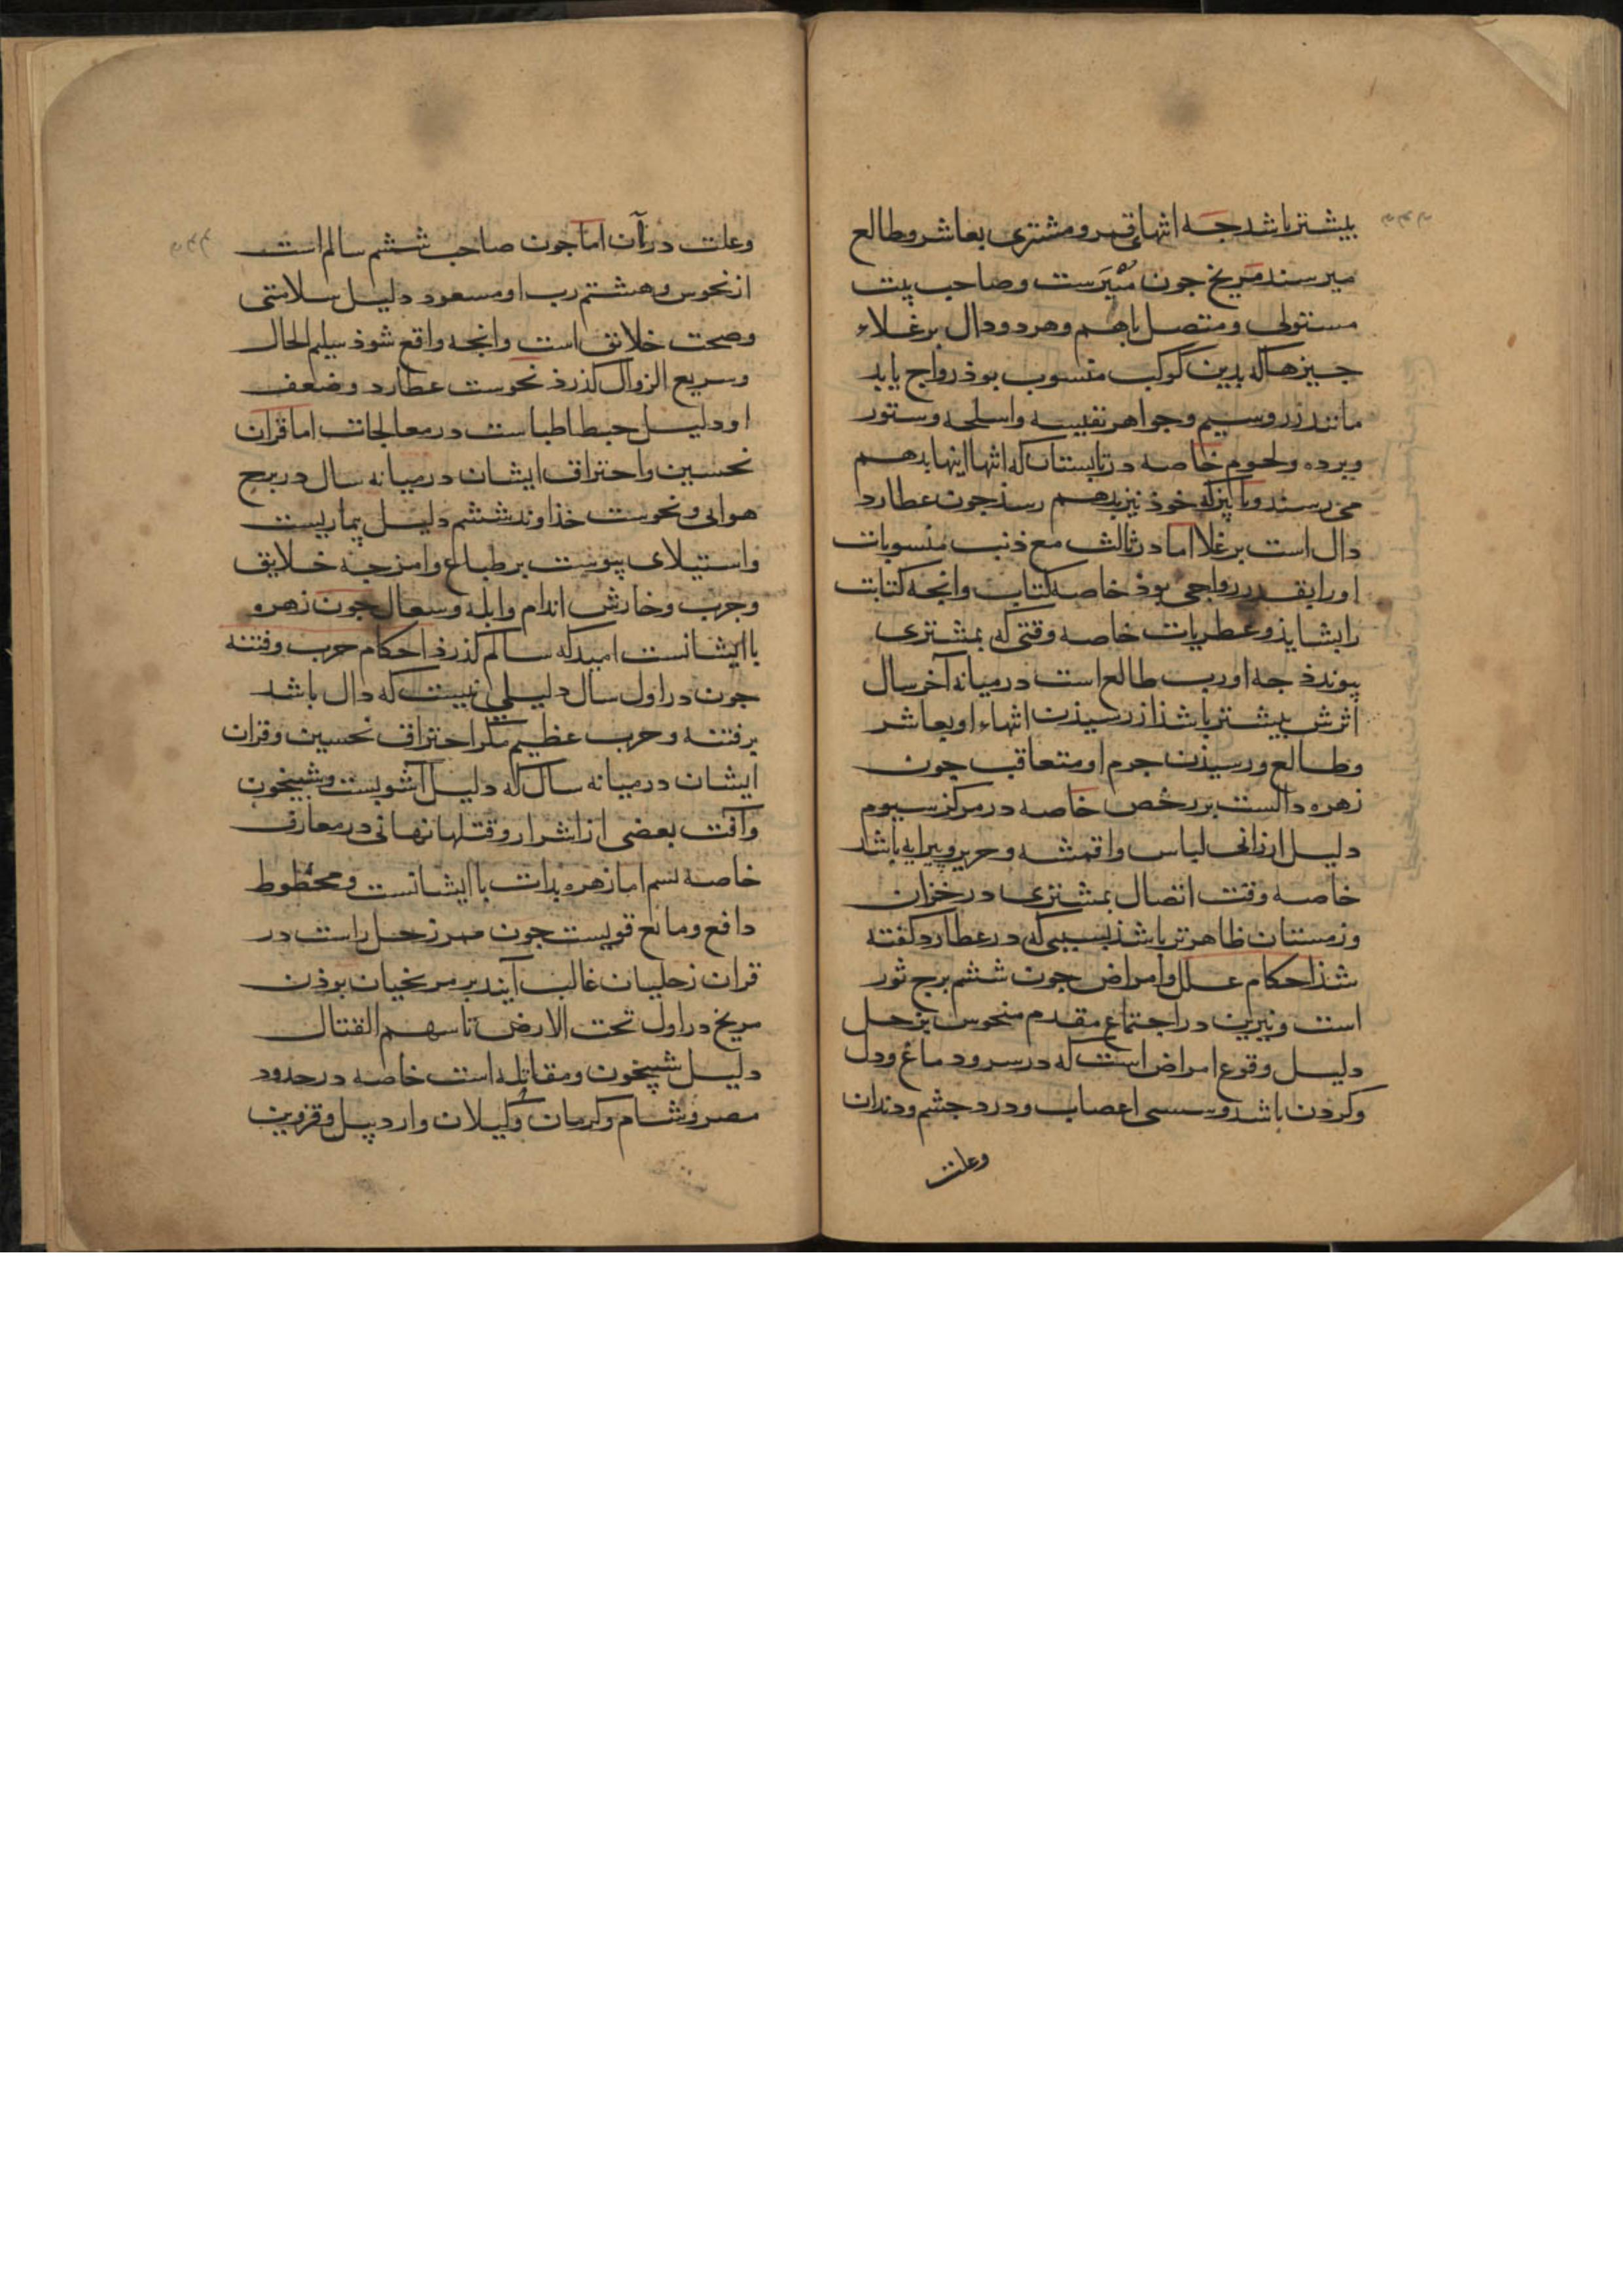 بیشتر باشد جه انتهای قمر و مشتری بعاشر و طالع
میرسند مریخ جون مبتزست و صاحب بیت
مستولی و متصل باهم و هر دو دال بر غلاء
جیزها که بدین کوکب منسوب بوذ رواج یابد
مانند زر و سیم و جواهر نفیسه و اسلحه و ستور
و برده و لحوم خاصه در تابستان که انتها اینها بدهم
می رسند و بابیز که خوذ نیز بدهم رسذ جون عطارد
دال است بر غلا اما در ثالث مع ذنب منسوبات
او را بقدر رواجی بوذ خاصه کتاب و انجه کتابت
را بشایذ و عطریات خاصه وقتی که بمشتری
پیوندذ جه او رب طالع است در میانه آخر سال
اثرش بیشتر باشذ از رسیذن انتهاء او بعاشر
و طالع و رسیذن جرم او متعاقب جون
زهره دالست بر رخص خاصه در مرکز سیوم
دلیل ارزانی لباس و اقمشه و حریر و پیرایه باشد
خاصه وقت اتصال بمشتری در خزان
و زمستان ظاهرتر باشذ بسببی که در عطارد کفته
شذ احکام علل و امراض جون ششم برج ثور
است و نیرین در اجتماع مقدم منحوس بزحل
دلیل وقوع امراض است که در سر و دماغ و دل
و کردن باشد و سستی اعصاب و درد جشم و دندان
وعلت
وعلت در آن اما جون صاحب ششم سالم است
از نحوس و هشتم رب او مسعود دلیل سلامتی
و صحت خلایق است و انجه واقع شوذ سلیم الحال
و سریع الزوال کذرذ نحوست عطارد و ضعف
او دلیل خبط اطباست در معالجات اما قران
نحسین و احتراق ایشان در میانه سال در برج
هوایی و نحوست خذاوند ششم دلیل بیماریست
و استیلای یبوست بر طباع و امزجه خلایق
و جرب و خارش اندام و ابله و سعال جون زهره
با ایشانست امید که سالم کذرذ احکام حرب و فتنه
جون در اول سال دلیلی نیست که دال باشد
بر فتنه و حرب عظیم مکر احتراق نحسین و قران
ایشان در میانه سال که دلیل آشوبست و شبیخون
و آفت بعضی از اشرار و قتلها نهانی در معارف
خاصه بسم اما زهره بذات با ایشانست و محظوظ
دافع و مانع قویست جون ممر زحل راست در
قران زحلیان غالب آیند بر مریخیان بوذن
مریخ در اول تحت الارض تا سهم القتال
دلیل شبیخون و مقاتله است خاصه در حدود
مصر و شام و کرمان و کیلان و اردبیل و قزوین